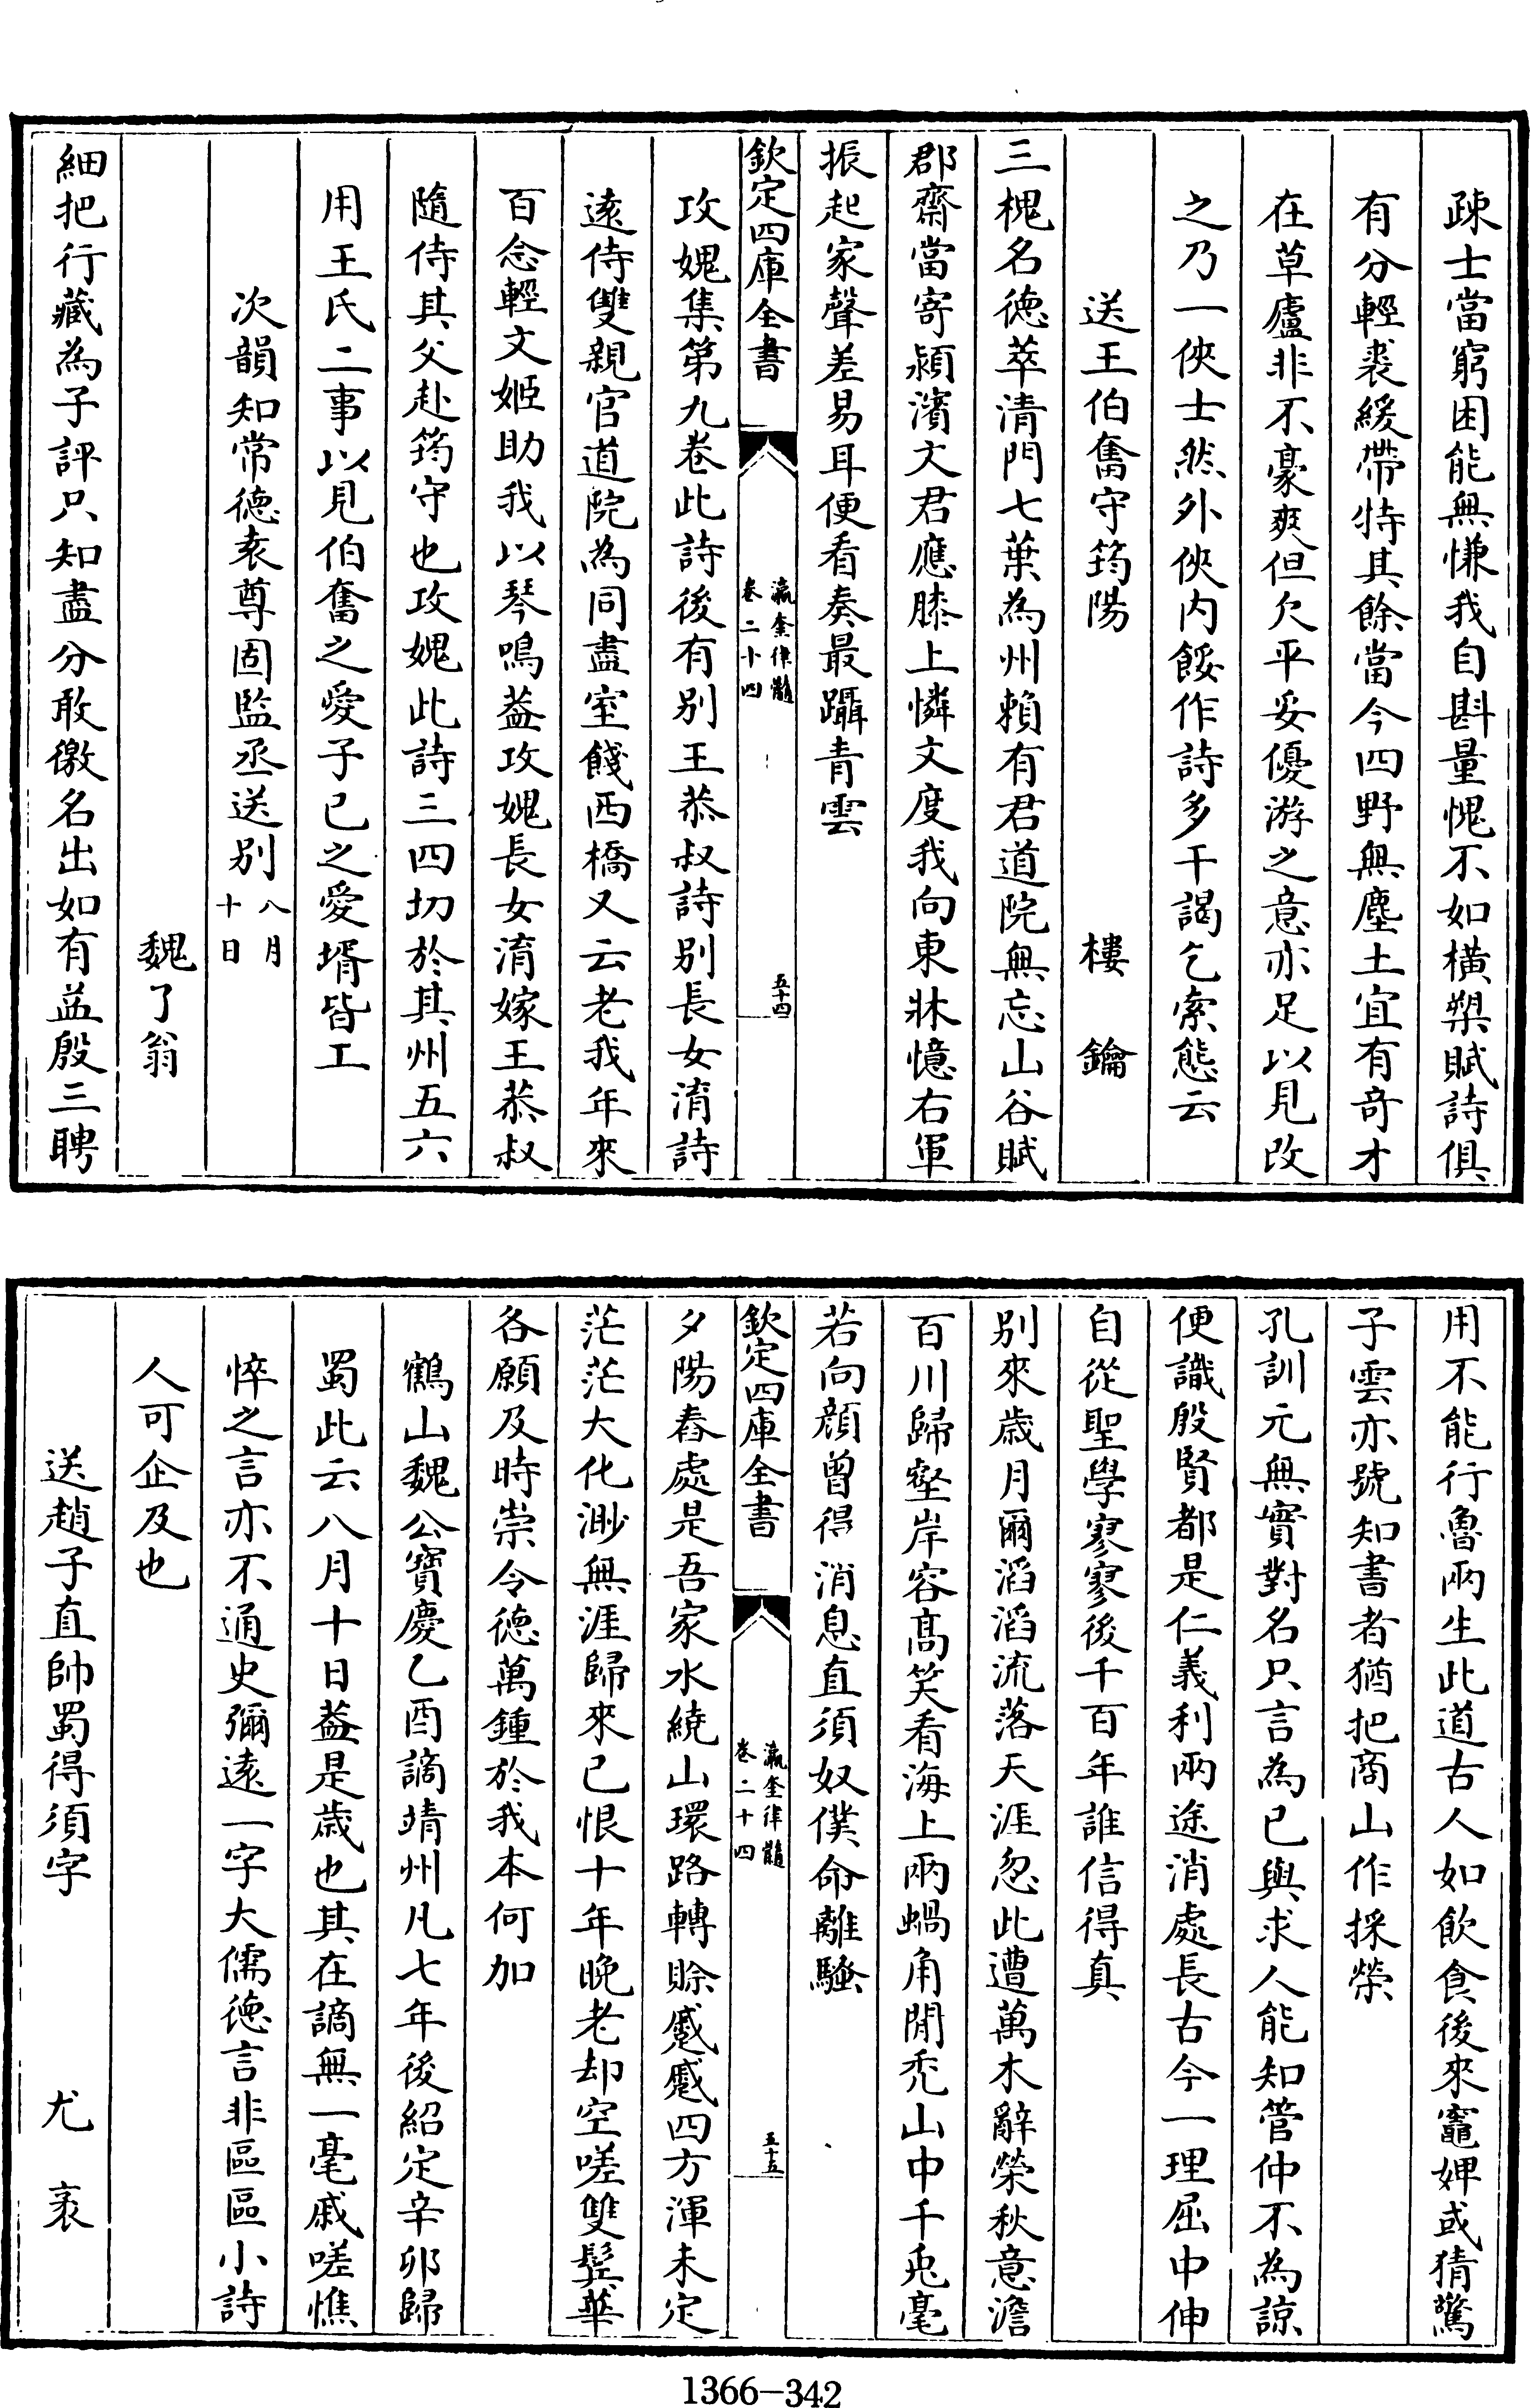 疎士當窮困能無慊我自斟量愧不如橫槊賦詩俱
有分輕裘緩帶特其餘當今四野無塵土宜有竒才
在草廬非不豪爽但欠平妥優游之意亦足以見改
之乃一俠士然外俠内餒作詩多干謁乞索態云
送王伯奮守筠陽　樓鑰
三槐名德萃清門七葉為州賴有君道院無忘山谷賦
郡齋當寄潁濱文君應膝上憐文度我向東牀憶右軍
振起家聲差易耳便看奏最躡青雲
欽定四庫全書　瀛奎律髓　卷二十四　五十四
攻媿集第九卷此詩後有别王恭叔詩别長女淯詩
遠侍雙親官道院為同盡室餞西橋又云老我年來
百念輕文姬助我以琴鳴葢攻媿長女淯嫁王恭叔
隨侍其父赴筠守也攻媿此詩三四切於其州五六
用王氏二事以見伯奮之愛子已之愛壻皆工
次韻知常德袁尊固監丞送别八月十日
魏了翁
細把行藏為子評只知盡分敢徼名出如有益殷三聘
用不能行魯兩生此道古人如飲食後來竈婢或猜驚
子雲亦號知書者猶把商山作採榮
孔訓元無實對名只言為已與求人能知管仲不為諒
便識殷賢都是仁義利兩途消處長古今一理屈中伸
自從聖學寥寥後千百年誰信得真
别來歲月爾滔滔流落天涯忽此遭萬木辭榮秋意澹
百川歸壑岸容髙笑看海上兩蝸角閒秃山中千兎毫
若向顔曾得消息直須奴僕命離騷
欽定四庫全書　瀛奎律髓　卷二十四　五十五
夕陽舂處是吾家水繞山環路轉賒蹙蹙四方渾未定
茫茫大化渺無涯歸來已恨十年晚老却空嗟雙鬂華
各願及時崇令德萬鍾於我本何加
鶴山魏公寶慶乙酉謫靖州凡七年後紹定辛卯歸
蜀此云八月十日葢是歲也其在謫無一毫戚嗟憔
悴之言亦不通史彌遠一字大儒德言非區區小詩
人可企及也
送趙子直帥蜀得須字　尤袤
1366-342